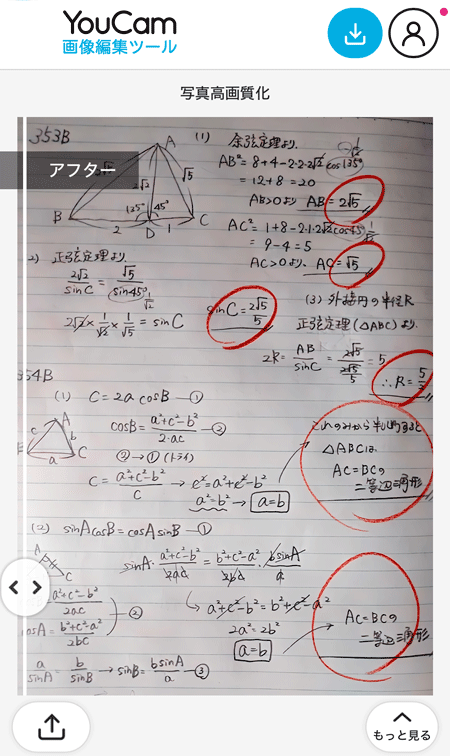 YouCam
画像編集ツール
写真高画質化
アフター
353B
A
2√2
√5
135°
45°
B
2
D
1
C
(1) 余弦定理より.
AB² = 8+4-2·2·2√2 cos135°
= 12+8 = 20
AB>0より AB = 2√5
AC² = 1+8-2·1·2√2 cos45° 1/√2
= 9-4 = 5
AC>0より、AC = √5
2) 正弦定理より
2√2/sinC = √5/sin45° 1/√2
2√2 × 1/√2 × 1/√5 = sinC
sinC = 2√5/5
(3) 外接円の半径R
正弦定理(△ABC)より.
2R = AB/sinC = 2√5/(2√5/5) = 5
∴R = 5/2
354B
(1) C = 2a cosB - ①
cosB = (a²+c²-b²)/(2·ac) - ②
② → ① (トライ)
C = (a²+c²-b²)/C → c² = a²+c²-b²
a² = b² → a=b
A
c
b
a
C
△ABCは
AC=BCの
二等辺三角形
(2) sinAcosB = cosAsinB - ①
A
C
sinA · (a²+c²-b²)/2ac = (b²+c²-a²)/2bc · bsinA/a
a²+c²-b²/2ac
cosA = (b²+c²-a²)/2bc
②
a²+c²-b² = b²+c²-a²
2a² = 2b²
a=b
a/sinA = b/sinB → sinB = bsinA/a - ③
AC=BCの
二等辺三角形
もっと見る